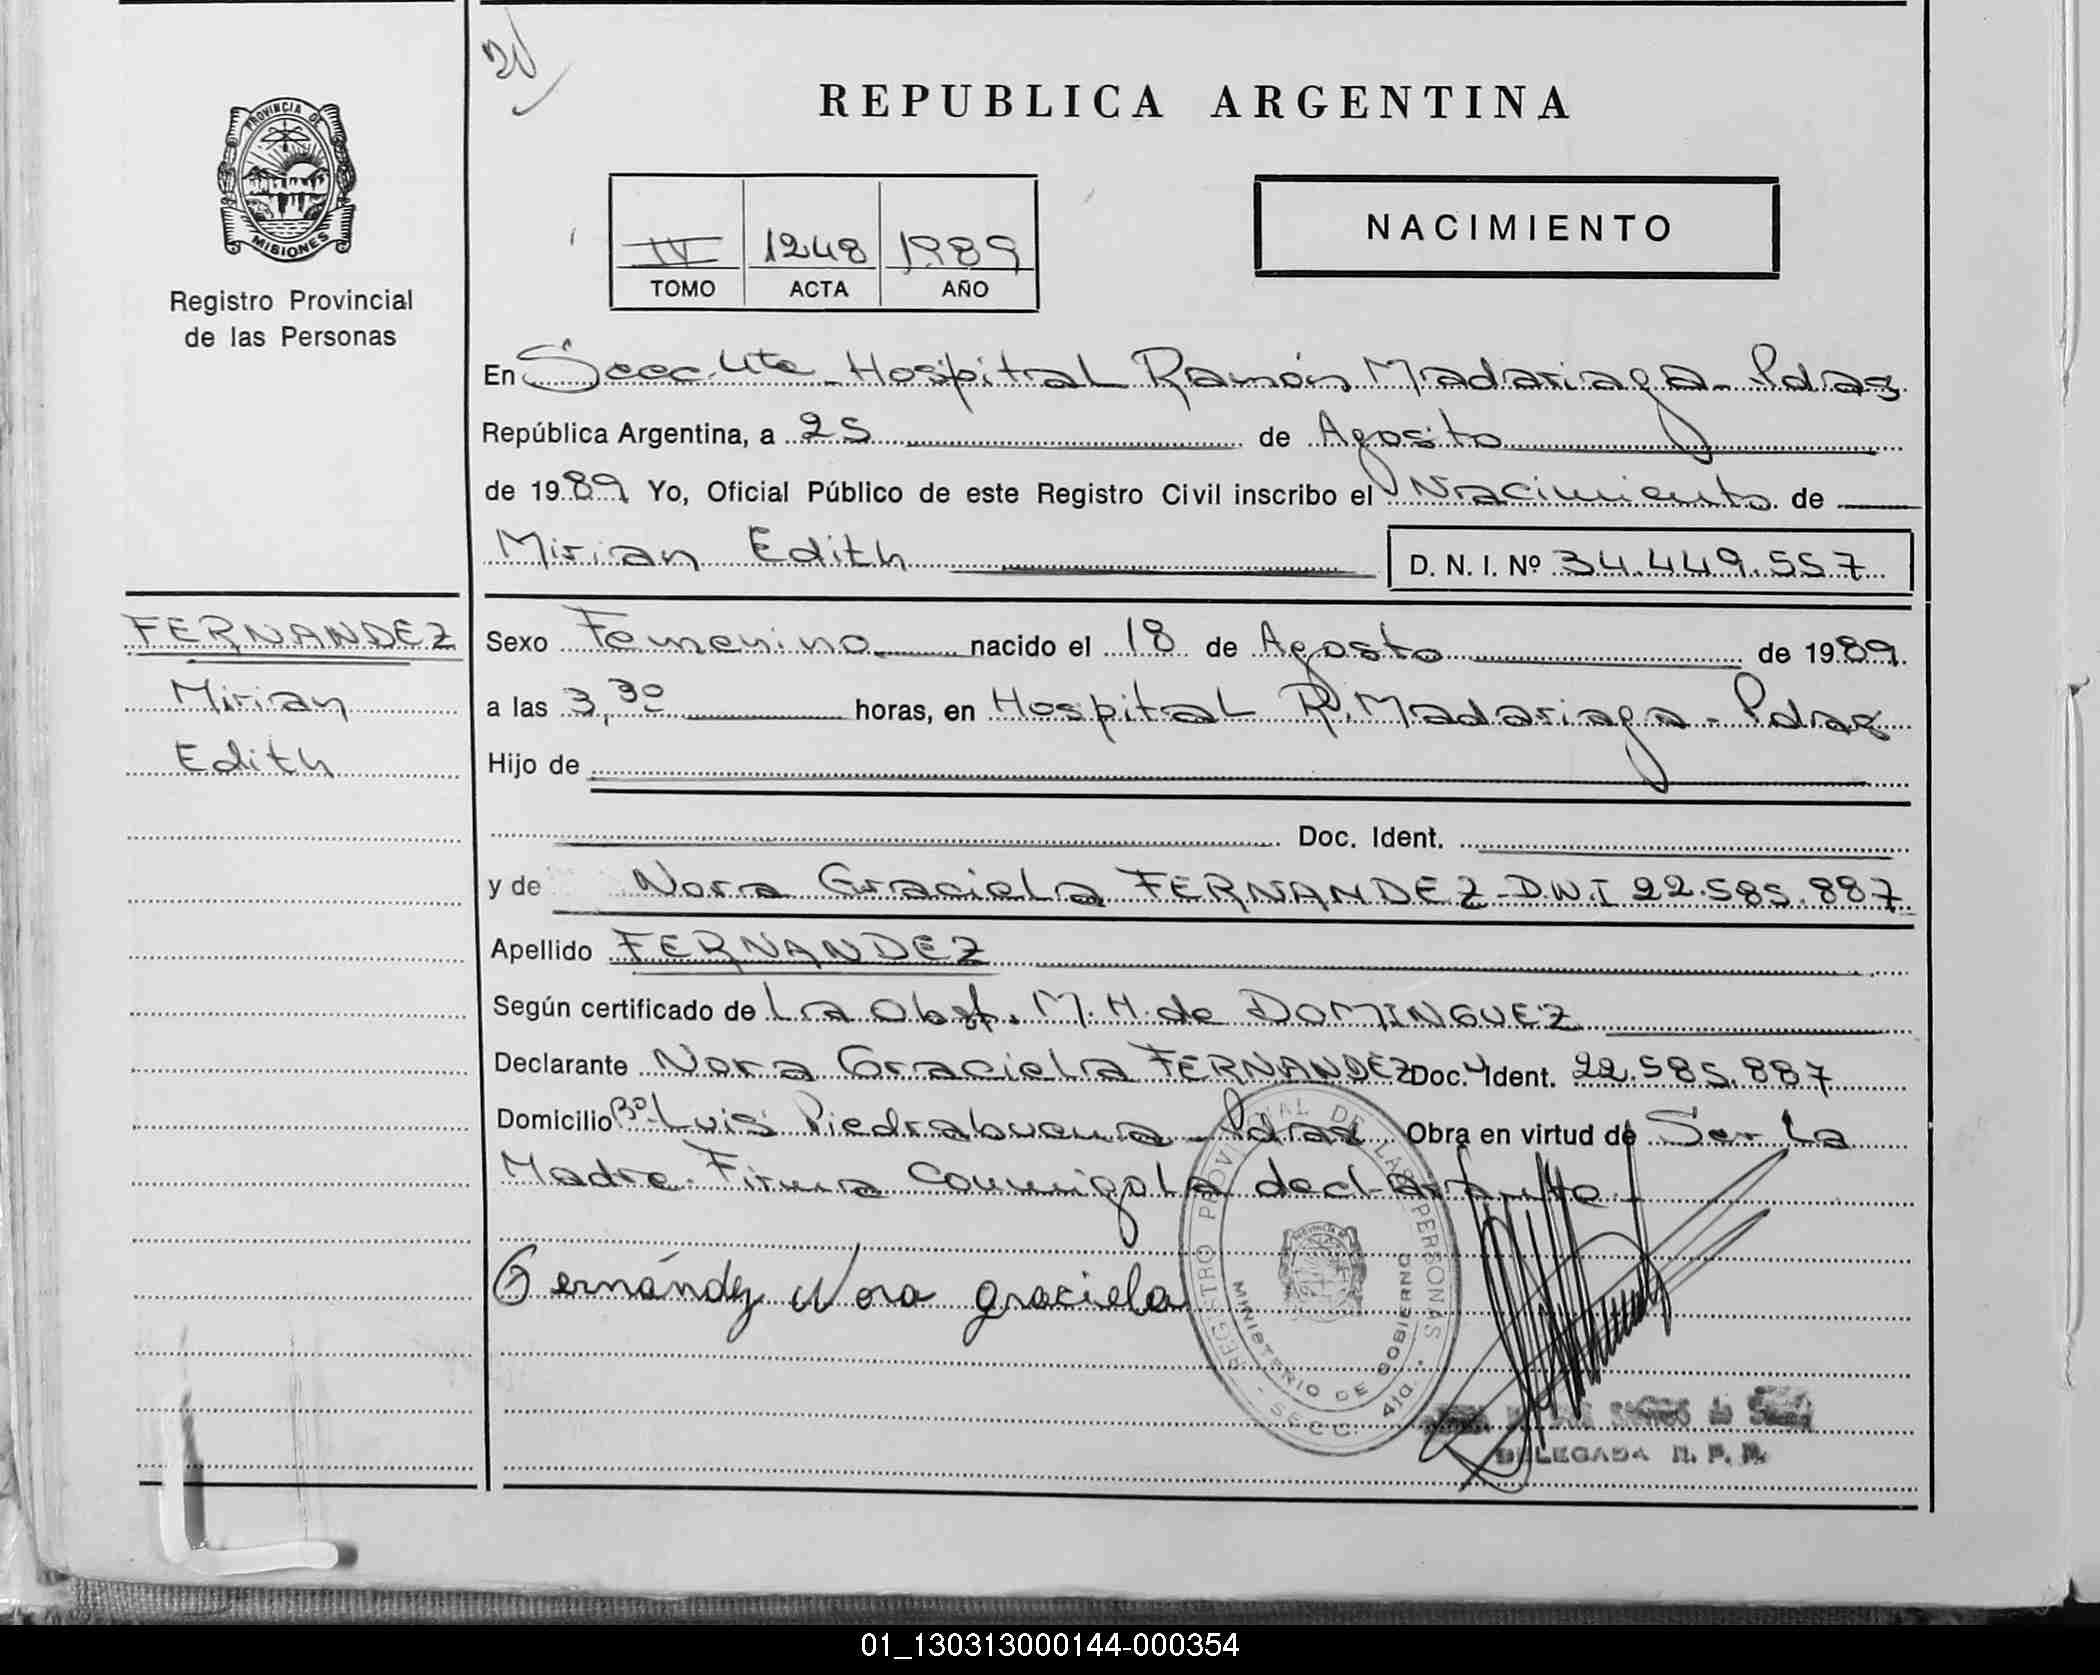 PROVINCIA DE
MISIONES
Registro Provincial
de las Personas
REPUBLICA ARGENTINA
IV 1248 1989
TOMO ACTA AÑO
NACIMIENTO
En Secc. Hospital Ramón Madariaga - Pdas
República Argentina, a 25 de Agosto
de 1989 Yo, Oficial Público de este Registro Civil inscribo el Nacimiento de
Mirian Edith D. N. I. Nº 34.449.557
FERNANDEZ
Mirian
Edith
Sexo Femenino nacido el 18 de Agosto de 1989
a las 3,30 horas, en Hospital R. Madariaga - Pdas
Hijo de
Doc. Ident.
y de Nora Graciela FERNANDEZ - D.N.I 22.585.887
Apellido FERNANDEZ
Según certificado de La Obst. M. H. de DOMINGUEZ
Declarante Nora Graciela FERNANDEZ Doc. Ident. 22.585.887
Domicilio Bº Luis Piedrabuena - Pdas Obra en virtud de Ser La
Madre. Firma Conmigo La declarante
Fernández Nora graciela
REGISTRO PROVINCIAL DE LAS PERSONAS
MINISTERIO DE GOBIERNO
SECC. 4ta.
DELEGADA R. P. P.
01_130313000144-000354